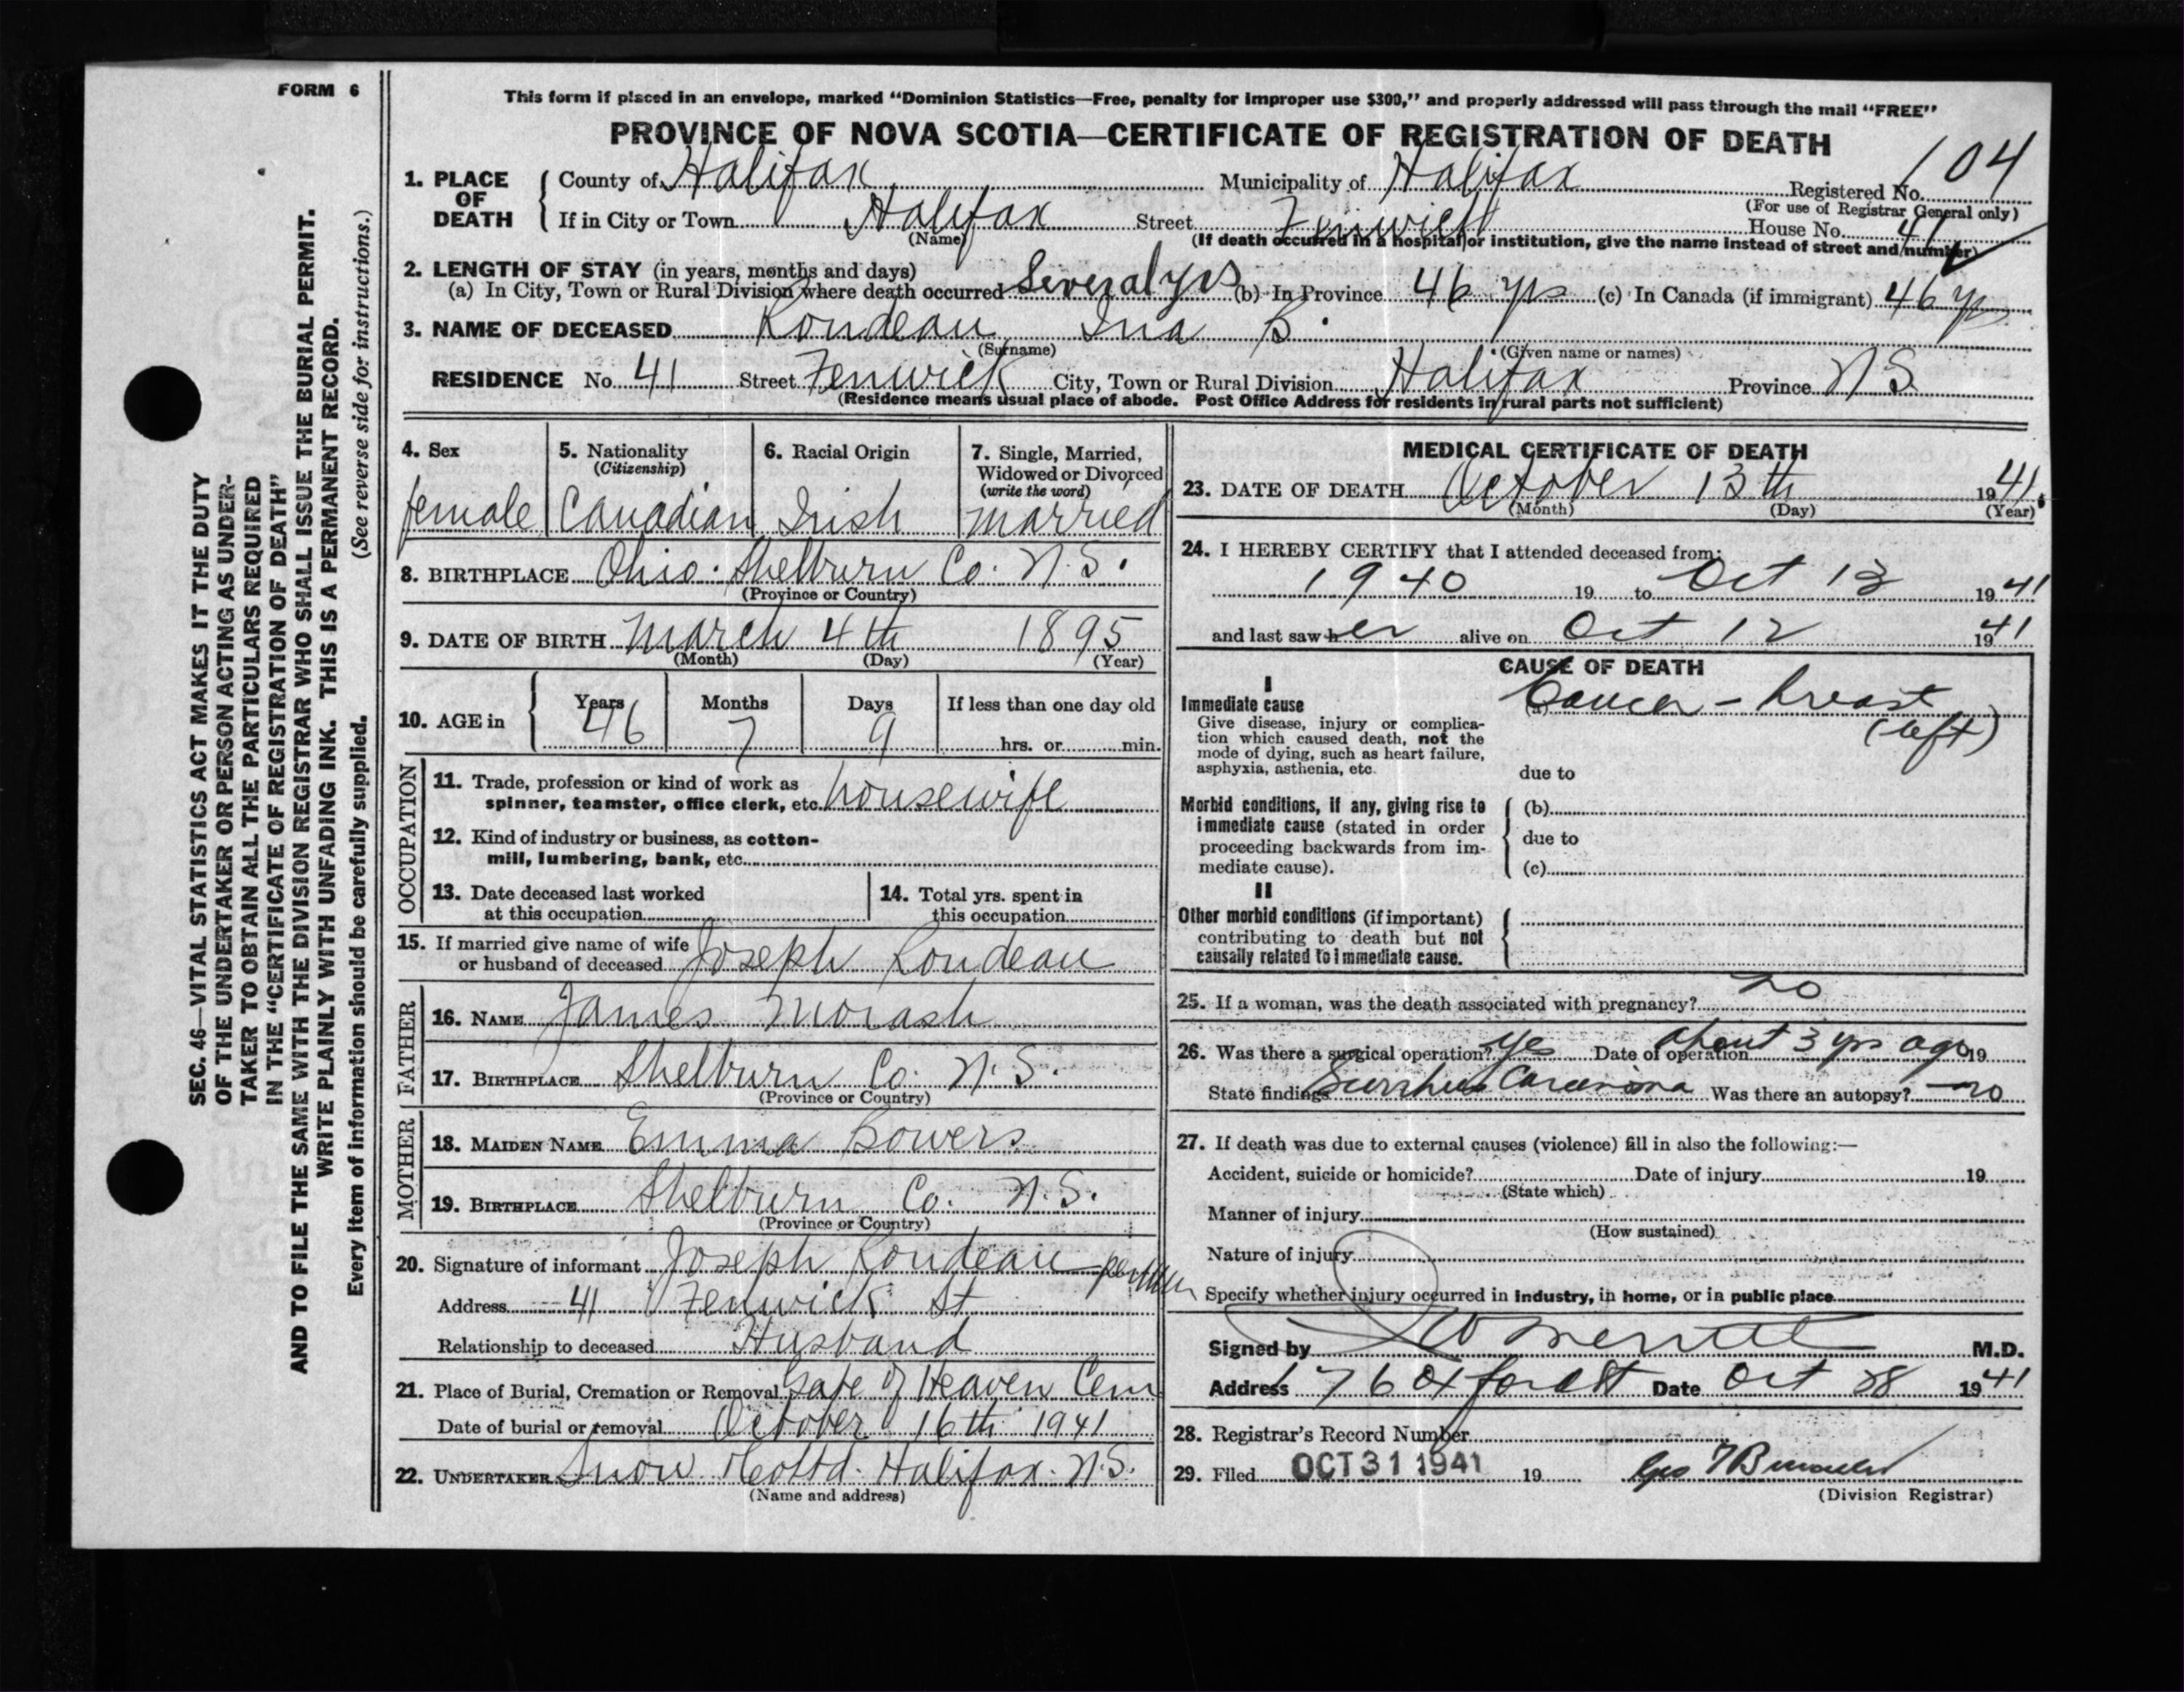 FORM 6
SEC. 46—VITAL STATISTICS ACT MAKES IT THE DUTY
OF THE UNDERTAKER OR PERSON ACTING AS UNDER-
TAKER TO OBTAIN ALL THE PARTICULARS REQUIRED
IN THE "CERTIFICATE OF REGISTRATION OF DEATH"
AND TO FILE THE SAME WITH THE DIVISION REGISTRAR WHO SHALL ISSUE THE BURIAL PERMIT.
WRITE PLAINLY WITH UNFADING INK. THIS IS A PERMANENT RECORD.
Every item of information should be carefully supplied. (See reverse side for instructions.)
This form if placed in an envelope, marked "Dominion Statistics—Free, penalty for improper use $300," and properly addressed will pass through the mail "FREE"
PROVINCE OF NOVA SCOTIA—CERTIFICATE OF REGISTRATION OF DEATH
1. PLACE OF DEATH County of Halifax Municipality of Halifax Registered No. 104
(For use of Registrar General only)
If in City or Town Halifax Street Fenwick House No. 41
(Name) (If death occurred in a hospital or institution, give the name instead of street and number)
2. LENGTH OF STAY (in years, months and days)
(a) In City, Town or Rural Division where death occurred Several yrs (b) In Province 46 yrs (c) In Canada (if immigrant) 46 yrs
3. NAME OF DECEASED Rondeau Ina B.
(Surname) (Given name or names)
RESIDENCE No. 41 Street Fenwick City, Town or Rural Division Halifax Province N S.
(Residence means usual place of abode. Post Office Address for residents in rural parts not sufficient)
4. Sex 5. Nationality 6. Racial Origin 7. Single, Married,
(Citizenship) Widowed or Divorced
(write the word)
female Canadian Irish married
8. BIRTHPLACE Ohio. Shelburn Co. N.S.
(Province or Country)
9. DATE OF BIRTH March 4th 1895
(Month) (Day) (Year)
10. AGE in Years Months Days If less than one day old
46 7 9 hrs. or min.
OCCUPATION
11. Trade, profession or kind of work as
spinner, teamster, office clerk, etc. housewife
12. Kind of industry or business, as cotton-
mill, lumbering, bank, etc.
13. Date deceased last worked 14. Total yrs. spent in
at this occupation this occupation
15. If married give name of wife
or husband of deceased Joseph Rondeau
FATHER
16. NAME James Morash
17. BIRTHPLACE Shelburn Co. N.S.
(Province or Country)
MOTHER
18. MAIDEN NAME Emma Bowers
19. BIRTHPLACE Shelburn Co. N.S.
(Province or Country)
20. Signature of informant Joseph Rondeau
Address 41 Fenwick St
Relationship to deceased Husband
21. Place of Burial, Cremation or Removal Gate of Heaven Cem
Date of burial or removal October 16th 1941
22. UNDERTAKER Snow Halifax. N.S.
(Name and address)
MEDICAL CERTIFICATE OF DEATH
23. DATE OF DEATH October 13th 1941.
(Month) (Day) (Year)
24. I HEREBY CERTIFY that I attended deceased from:
1940 19 to Oct 13 1941
and last saw her alive on Oct 12 1941
CAUSE OF DEATH
I
Immediate cause (a) Cancer - breast
(left)
Give disease, injury or complica-
tion which caused death, not the
mode of dying, such as heart failure,
asphyxia, asthenia, etc. due to
Morbid conditions, if any, giving rise to (b)
immediate cause (stated in order
proceeding backwards from im- due to
mediate cause). (c)
II
Other morbid conditions (if important)
contributing to death but not
causally related to immediate cause.
25. If a woman, was the death associated with pregnancy? no
26. Was there a surgical operation? yes Date of operation about 3 yrs ago 19
State findings Carcinoma Was there an autopsy? no
27. If death was due to external causes (violence) fill in also the following:—
Accident, suicide or homicide? Date of injury 19
(State which)
Manner of injury
(How sustained)
Nature of injury
Specify whether injury occurred in industry, in home, or in public place
Signed by M.D.
Address 176 Oxford St Date Oct 28 1941
28. Registrar's Record Number
29. Filed OCT 31 1941 19
(Division Registrar)